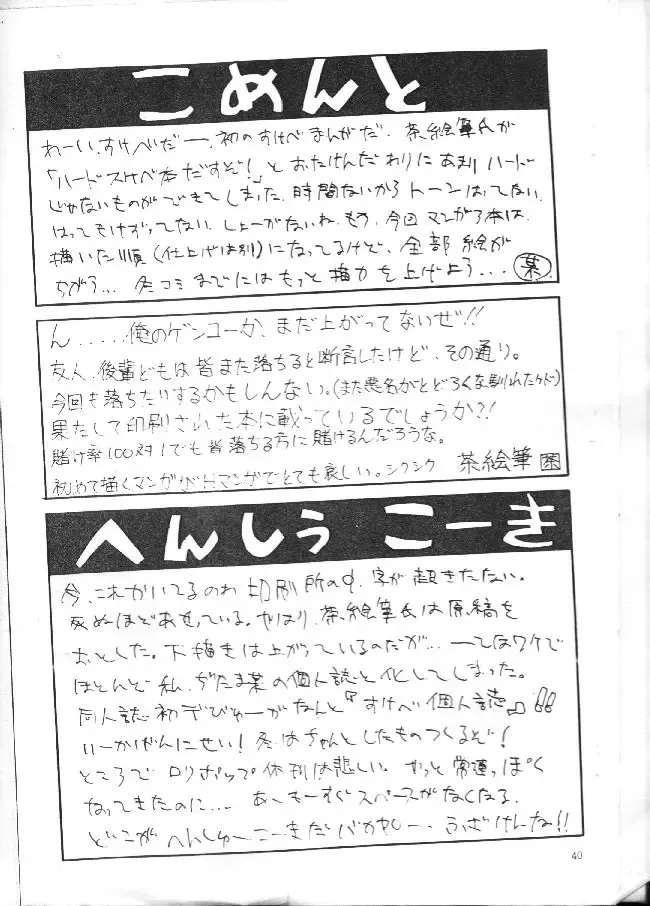 こめんと
わーい、すけべだー、初のすけべまんがだ、茶絵筆氏が
「ハードスけべ本だすぞ!」と おたけんだわりにあまりハード
じゃないものができてしまった、時間ないからトーンはってない、
はってもけずってない、しょーがないね、もう、今回マンガ3本は、
描いた順(仕上げは別)になってるけど、全部絵が
ちがう… 冬コミまでにはもっと描力を上げよう… 葉
ん.....俺のゲンコーが、まだ上がってないぜ!!
友人、後輩どもは皆また落ちると断言したけど、その通り。
今回も落ちたりするかもしんない。(また悪名がとどろくな馴れたケド)
果たして印刷された本に載っているでしょうか?!
賭け率100対1でも皆落ちる方に賭けるんだろうな。
初めて描くマンガがHマンガでとても哀しい。シクシク 茶絵筆
へんしうこーき
今、これかいてるのわ 印刷所の中、字が起きたない。
死ぬほどあせっている。やはり、茶絵筆氏は原稿を
おとした。下描きは上がっているのだが… ーてなワケで
ほとんど私、ぢたま葉の個人誌と化してしまった。
同人誌初デびゅーがなんと『すけべ個人誌』!!
いーかげんにせい!冬はちゃんとしたものつくるぞ!
ところでロリポップ休刊は悲しい。やっと常連っぽく
なってきたのに… あーもーすぐスペースがなくなる、
どこが へんしゅーこーきだ バカやろー、ふざけんな!!
40